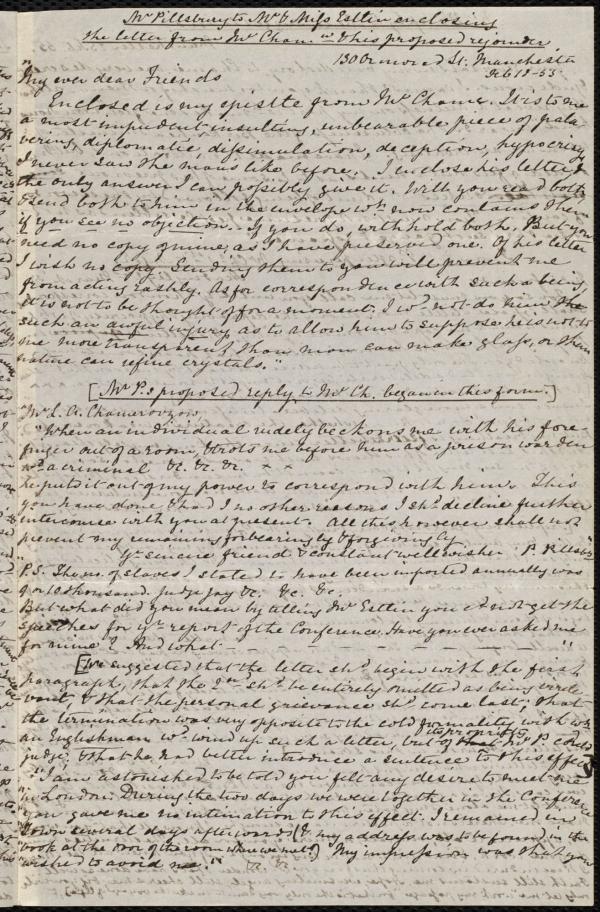 Mr Pillsbury to Mr & Miss Estlin enclosing
the letter from Mr Cham. wh & his proposed rejoinder
130 Ormond St: Manchester
Feb 18-53
My ever dear Friends
Enclosed is my epistle from Mr Chame. It is to me
a most impudent, insulting, unbearable piece of pala
vering, diplomatic dissimulation, deception, hypocrisy
I never saw the man's like before. I enclose his letter &
the only answer I can possibly give it. Will you read both
& send both to him in the envelope wh now contains them
if you see no objection. If you do, withhold both. But you
need no copy of mine, as I have preserved one. Of his letter
I wish no copy. Sending them to you will prevent me
from acting rashly. As for correspondence with such a being,
it is not to be thought of for a moment. I wd not do him the
such an awful injury, as to allow him to suppose he is not to
me more transparent than man can make glass, or than
nature can refine crystals."
[Mr P.s proposed reply to Mr Ch. began in this form.]
"Mr L. A. Chamerovzow,
"When an individual rudely beckons me with his fore-
finger out of a room, & trots me before him as a prison warden
wd a criminal &c. &c. &c. × ×
he puts it out of my power to correspond with him. This
you have done & had I no other reasons I shd decline further
intercourse with you at present. All this however shall not
prevent my remaining forbearingly & forgivingly
Yr sincere friend & constant well wisher P. Pillsbury
P.S. The no. of slaves I stated to have been imported annually was
thousand. Judge Jay &c. &c. &c.
But what did you mean by telling Mr Estlin you cd not get the
speeches for yr report of the Conference. Have you ever asked me
for mine? And what - - - - - - - - "
[We suggested that the letter shd begin with the first
paragraph, that the 2nd shd be entirely omitted as being irrele-
vant, & that the personal grievance shd come last; that
the termination was very opposite to the cold formality with wh
an Englishman wd wind up such a letter, but of its propriety Mr P. could
judge; & that he had better introduce a sentence to this effect
"I am astonished to be told you felt any desire to meet me
in London. During the two days we were together in the Conference
you gave me no intimation to this effect. I remained in
town several days afterwards (& my address was to be found in the
book at the door of the room where we met.) My impression was that you
wished to avoid me." &c &c